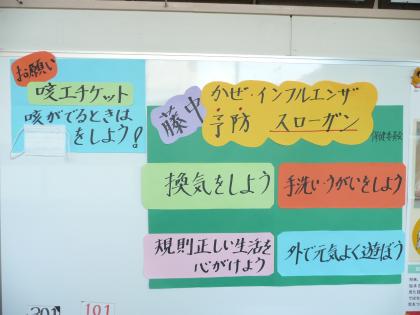 お願い
咳エチケット
咳がでるときは
をしよう!
藤中
かぜ・インフルエンザ
予防 スローガン
保健委員会
換気をしよう
手洗い・うがいをしよう
規則正しい生活を
心がけよう
外で元気よく遊ぼう
301
101